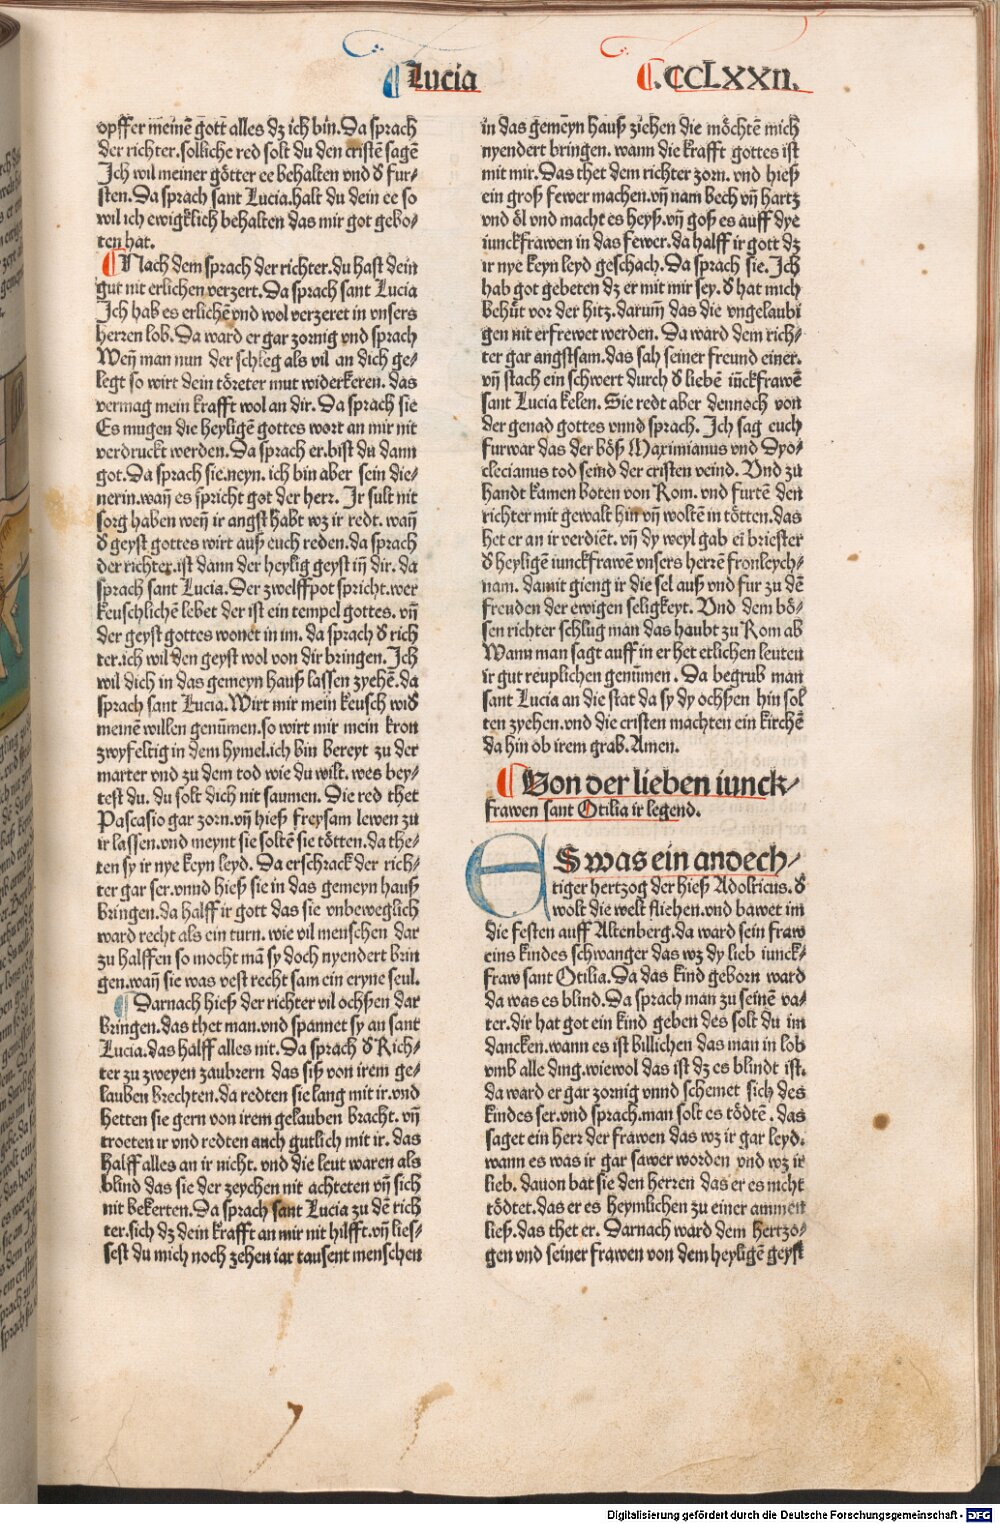 ¶ Lucia
¶ .CCLXXII.
opffer meinē gott alles dz ich bin. Da sprach
der richter. solliche red solt du den cristē sagē
Ich wil meiner götter ee behalten vnd d̓ fur⸗
sten. Da sprach sant Lucia. halt du dein ee so
wil ich ewigklich behalten das mir got gebo⸗
ten hat.
¶ Nach dem sprach der richter. du hast dein
gut nit erlichen verzert. Da sprach sant Lucia
Ich hab es erlichē vnd wol verzeret in vnsers
herren lob. Da ward er gar zornig vnd sprach
Weñ man nun der schleg als vil an dich ge⸗
legt so wirt dein töreter mut widerkeren. das
vermag mein krafft wol an dir. Da sprach sie
Es mugen die heyligē gottes wort an mir nit
verdruckt werden. Da sprach er. bist du dann
got. Da sprach sie. neyn. ich bin aber sein die⸗
nerin. wañ es spricht got der herr. Ir sult nit
sorg haben weñ ir angst habt wz ir redt. wañ
d̓ geyst gottes wirt auß euch reden. da sprach
der richter. ist dann der heylig geyst iñ dir. da
sprach sant Lucia. Der zwelffpot spricht. wer
keuschlichē lebet der ist ein tempel gottes. vñ
der geyst gottes wonet in im. da sprach d̓ rich
ter. ich wil den geyst wol von dir bringen. Ich
wil dich in das gemeyn hauß lassen zyehē. da
sprach sant Lucia. Wirt mir mein keusch wid̓
meinē willen genūmen. so wirt mir mein kron
zwyfeltig in dem hymel. ich bin bereyt zu der
marter vnd zu dem tod wie du wilt. wes bey⸗
test du. du solt dich nit saumen. Die red thet
Pascasio gar zorn. vñ hieß freysam lewen zu
ir lassen. vnd meynt sie soltē sie tötten. da the⸗
ten sy ir nye keyn leyd. Da erschrack der rich⸗
ter gar ser. vnnd hieß sie in das gemeyn hauß
bringen. da halff ir gott das sie vnbeweglich
ward recht als ein turn. wie vil menschen dar
zu halffen so mocht mā sy doch nyendert brin
gen. wañ sie was vest recht sam ein eryne seul.
¶ Darnach hieß der richter vil ochßen dar
bringen. das thet man. vnd spannet sy an sant
Lucia. das halff alles nit. Da sprach d̓ Rich⸗
ter zu zweyen zaubrern das siß von irem ge⸗
lauben brechten. da redten sie lang mit ir. vnd
hetten sie gern von irem gelauben bracht. vñ
troeten ir vnd redten auch gutlich mit ir. das
halff alles an ir nicht. vnd die leut waren als
blind das sie der zeychen nit achteten vñ sich
nit bekerten. Da sprach sant Lucia zu dē rich
ter. sich dz dein krafft an mir nit hilfft. vñ lies⸗
sest du mich noch zehen iar tausent menschen
in das gemeyn hauß ziehen die möchtē mich
nyendert bringen. wann die krafft gottes ist
mit mir. Das thet dem richter zorn. vnd hieß
ein groß fewer machen. vñ nam bech vñ hartz
vnd öl vnd macht es heyß. vñ goß es auff dye
iunckfrawen in das fewer. da halff ir gott dz
ir nye keyn leyd geschach. Da sprach sie. Ich
hab got gebeten dz er mit mir sey. d̓ hat mich
behüt vor der hitz. darum̄ das die vngelaubi
gen nit erfrewet werden. Da ward dem rich⸗
ter gar angstsam. das sah seiner freund einer.
vñ stach ein schwert durch d̓ liebē iūckfrawē
sant Lucia kelen. Sie redt aber dennoch von
der genad gottes vnnd sprach. Ich sag euch
furwar das der böß Maximianus vnd Dyo⸗
clecianus tod seind der cristen veind. Vnd zu
handt kamen boten von Rom. vnd furtē den
richter mit gewalt hin vñ woltē in tötten. das
het er an ir verdiēt. vñ dy weyl gab eī briester
d̓ heyligē iunckfrawē vnsers herrē fronleych⸗
nam. damit gieng ir die sel auß vnd fur zu dē
freuden der ewigen seligkeyt. Vnd dem bö⸗
sen richter schlug man das haubt zu Rom ab
Wann man sagt auff in er het etlichen leuten
ir gut reuplichen genūmen. Da begrub man
sant Lucia an die stat da sy dy ochßen hin sol
ten zyehen. vnd die cristen machten ein kirchē
da hin ob irem grab. Amen.
¶ Von der lieben iunck⸗
frawen sant Otilia ir legend.
ES was ein andech⸗
tiger hertzog der hieß Adolticus. d̓
wolt die welt fliehen. vnd bawet im
die festen auff Altenberg. da ward sein fraw
eins kindes schwanger das wz dy lieb iunck⸗
fraw sant Otilia. Da das kind geborn ward
da was es blind. Da sprach man zu seinē va⸗
ter. dir hat got ein kind geben des solt du im
dancken. wann es ist billichen das man in lob
vmb alle ding. wiewol das ist dz es blindt ist.
da ward er gar zornig vnnd schemet sich des
kindes ser. vnd sprach. man solt es tödtē. das
saget ein herr der frawen das wz ir gar leyd.
wann es was ir gar sawer worden vnd wz ir
lieb. dauon bat sie den herren das er es nicht
tödtet. das er es heymlichen zu einer ammen
ließ. das thet er. Darnach ward dem hertzo⸗
gen vnd seiner frawen von dem heyligē geyst
Digitalisierung gefördert durch die Deutsche Forschungsgemeinschaft - DFG